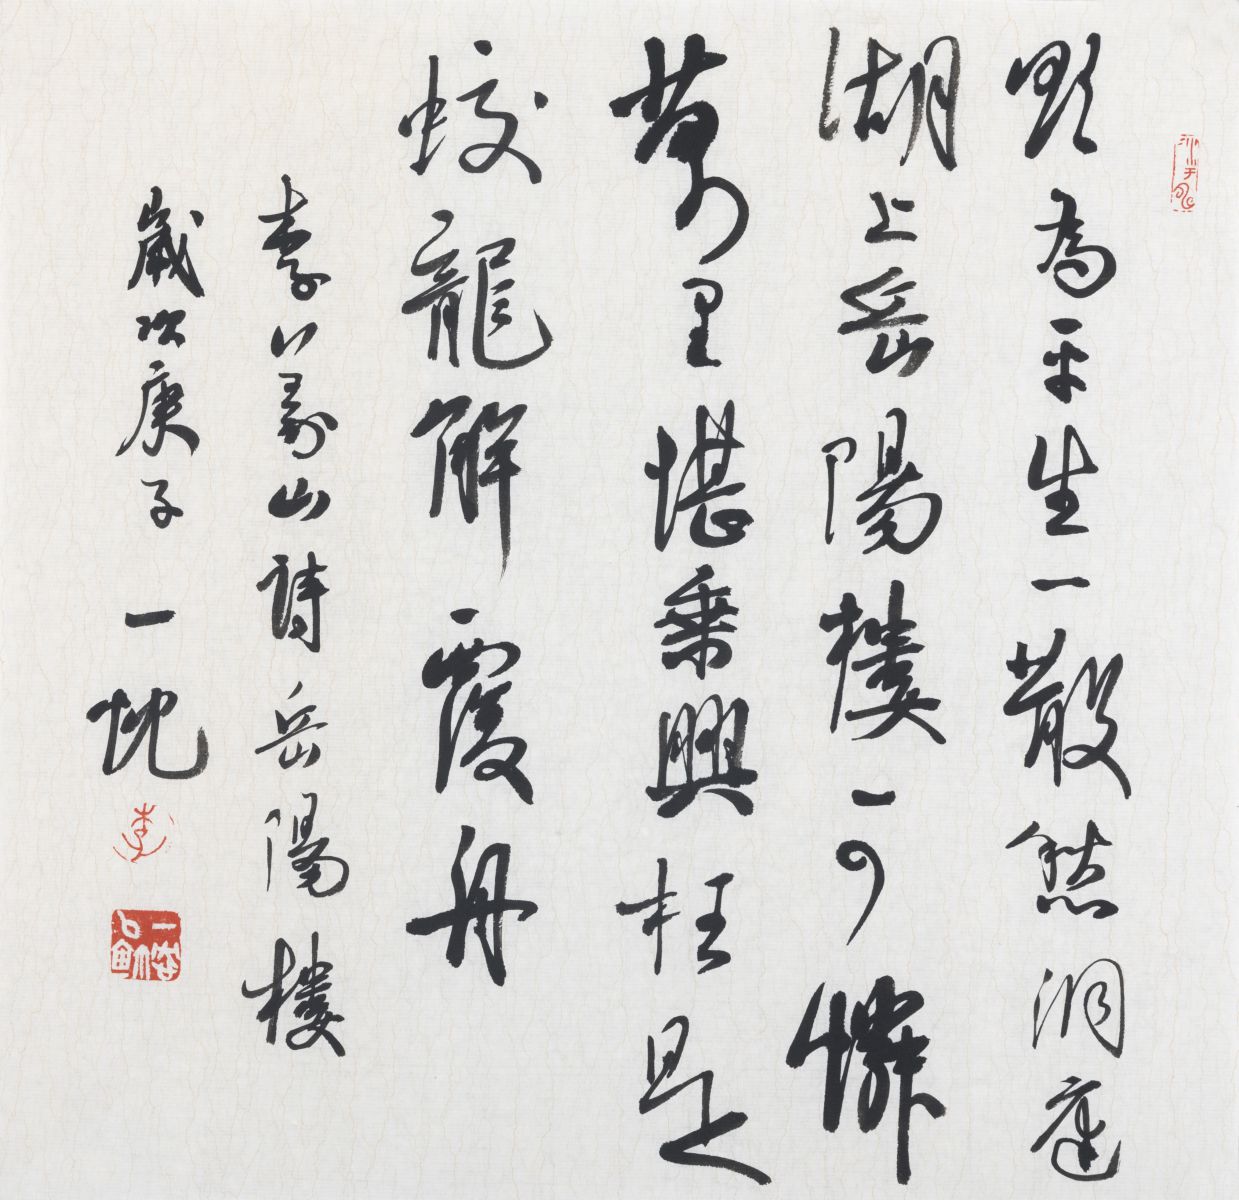 欲為平生一散愁洞庭
湖上岳陽樓可憐
萬里堪乘興枉是
蛟龍解覆舟
李義山詩岳陽樓
歲次庚子一忱
李